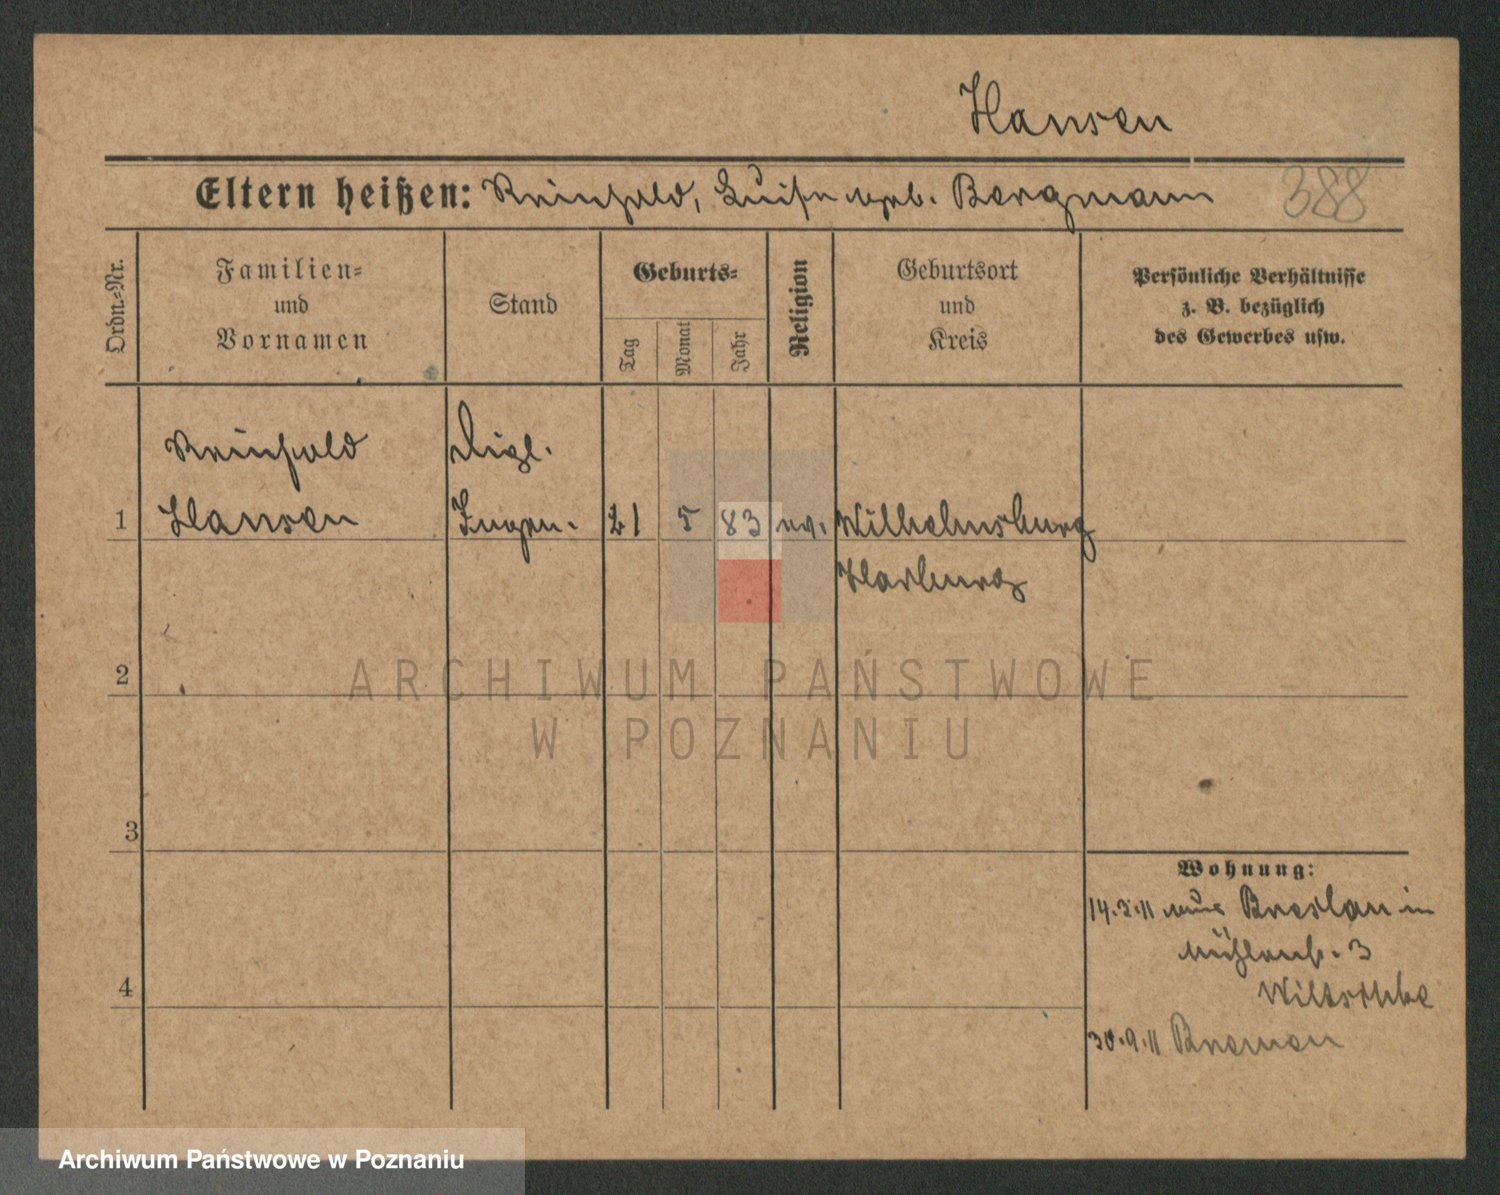 Hansen
Eltern heißen: Reinhold, Luise geb. Bergmann 388
Ordn.-Nr.
Familien-
und
Vornamen
Stand
Geburts-
Tag
Monat
Jahr
Religion
Geburtsort
und
Kreis
Persönliche Verhältnisse
z. B. bezüglich
des Gewerbes usw.
Reinhold Dipl.
1 Hansen Ingen. 21 5 83 ev. Wilhelmsburg
Harburg
2
ARCHIWUM PAŃSTWOWE
W POZNANIU
3
Wohnung:
14.3.11 aus Breslau in
Mühlenstr. 3
4
30.9.11 Bremen
Archiwum Państwowe w Poznaniu